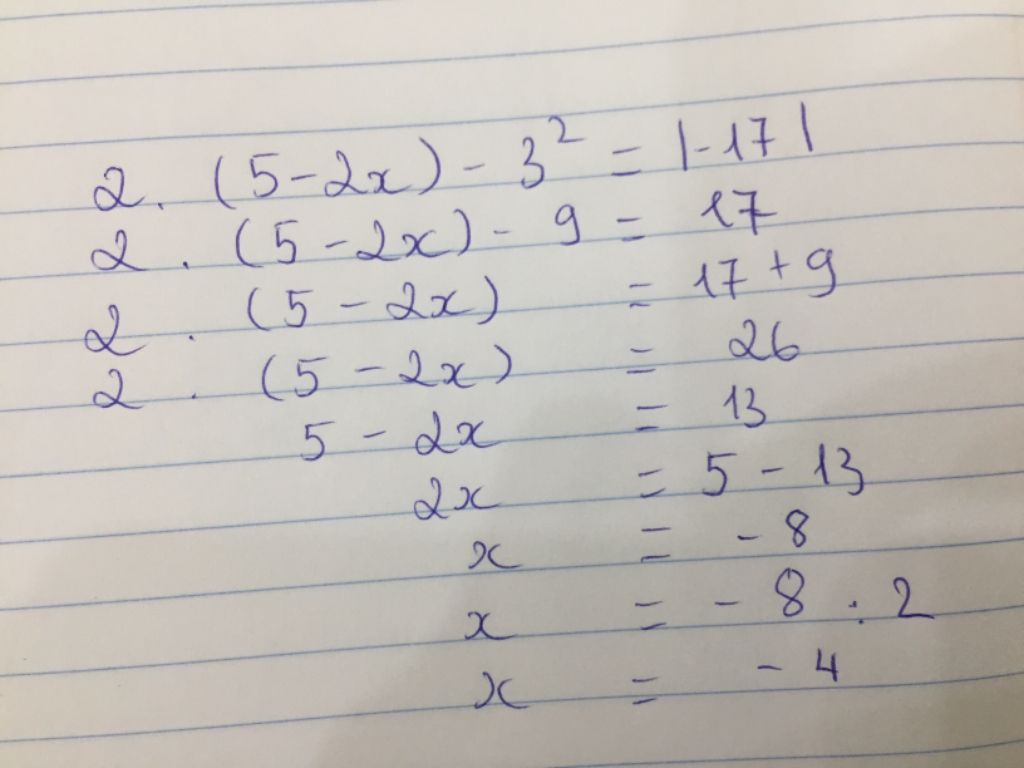 2. (5-2x) - 3² = |-17|
2. (5-2x) - 9 = 17
2. (5-2x) = 17+9
2. (5-2x) = 26
5-2x = 13
2x = 5-13
x = -8
x = -8 : 2
x = -4